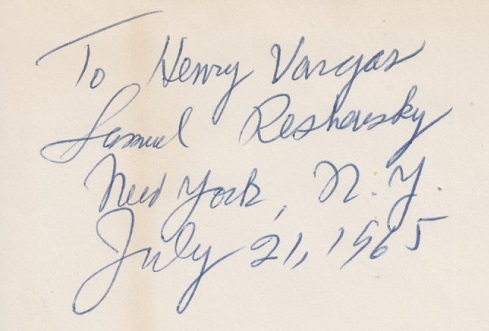 To Henry Vargas
Samuel Reshevsky
New York, N.Y.
July 21, 1965